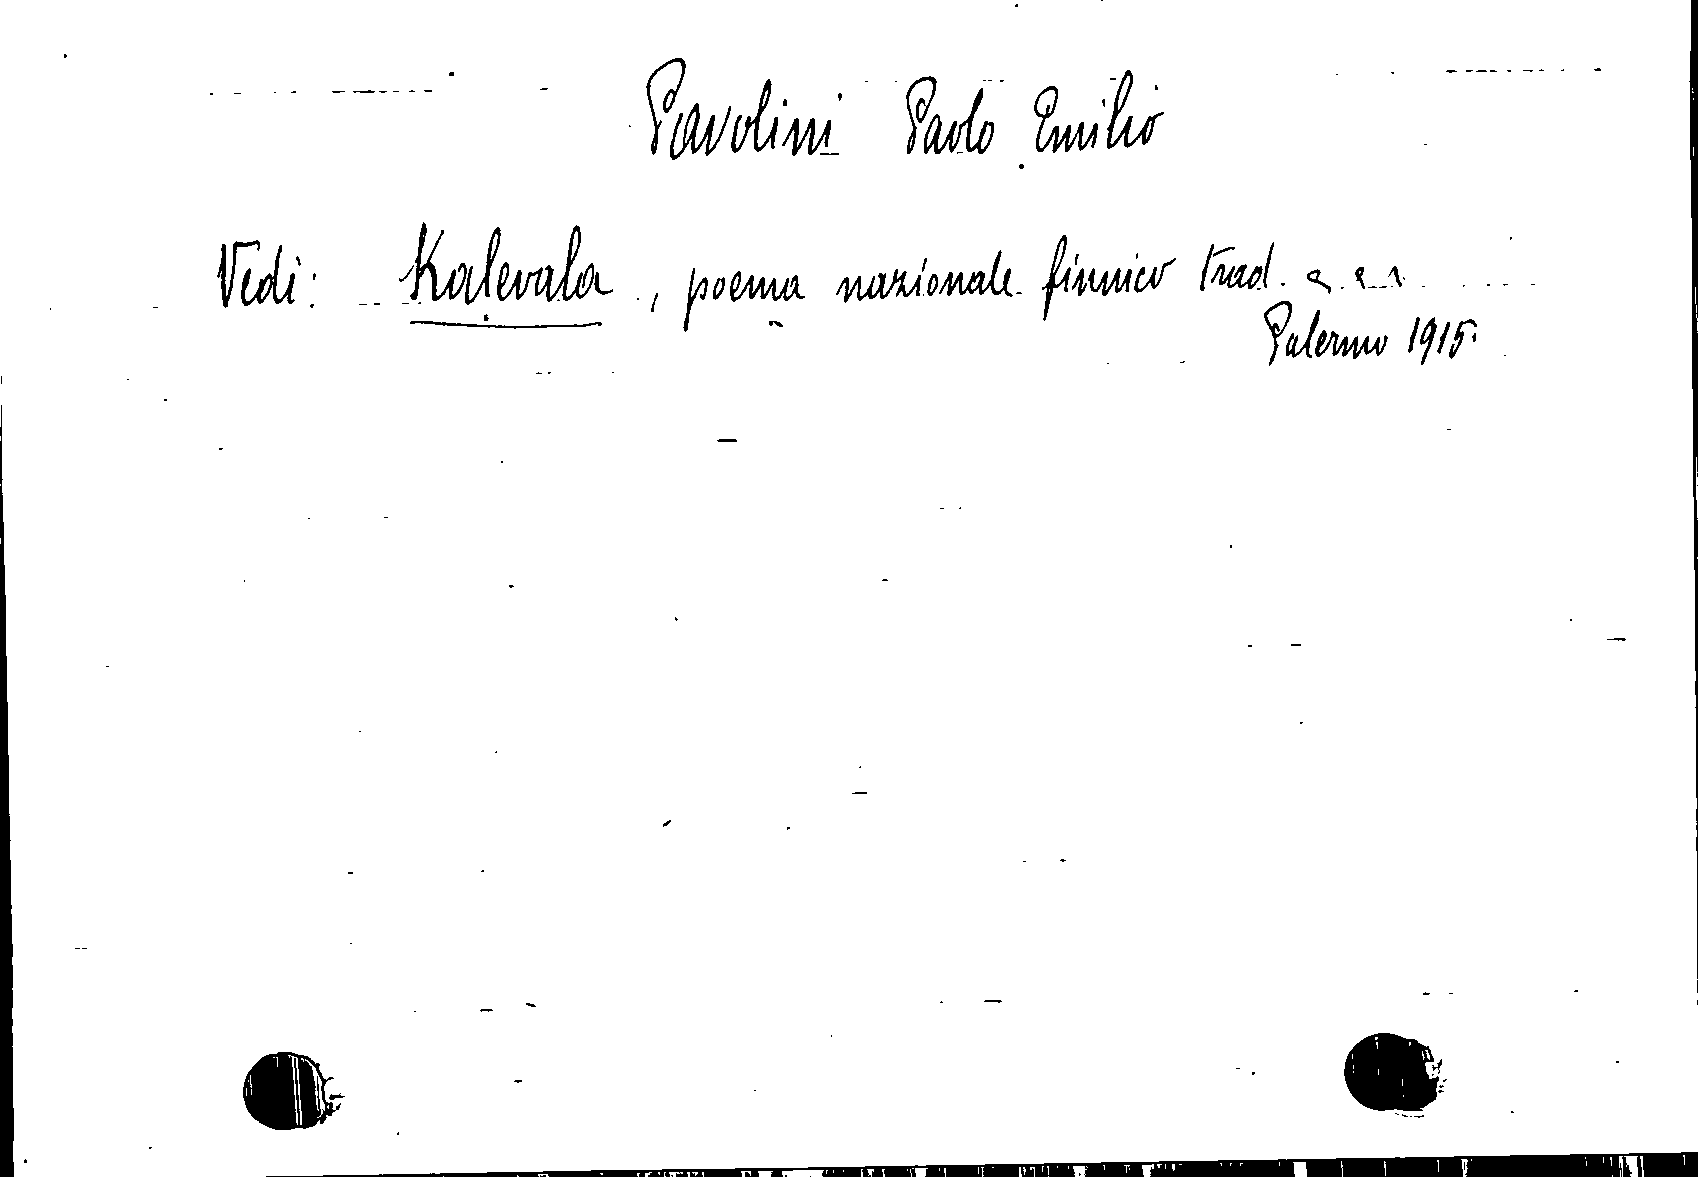 Pavolini Paolo Emilio
Vedi: Kalevala, poema nazionale finnico trad. . . .
Palermo 1915.